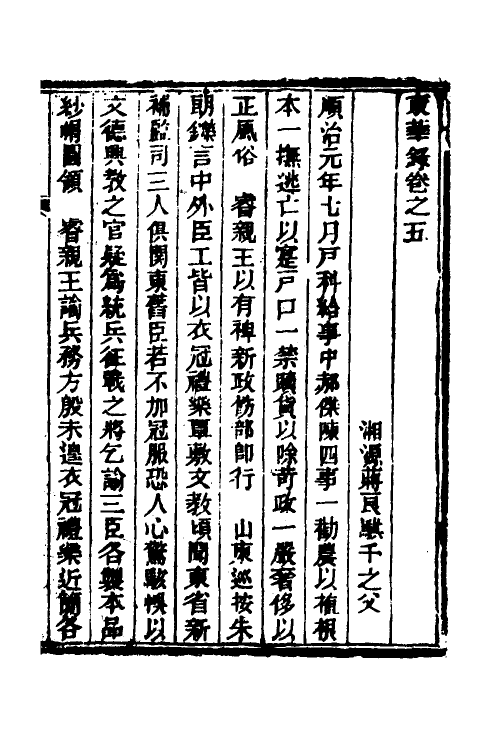 東華錄卷之五
湘源蔣良騏千之父
順治元年七月戶科給事中郝傑陳四事一勸農以植根
本一撫逃亡以寔戶口一禁贖貨以除苛政一嚴奢侈以
正風俗　睿親王以有裨新政飭部卽行　山東巡按朱
朗鑅言中外臣工皆以衣冠禮樂覃敷文敎頃聞東省新
補監司三人俱関東舊臣若不加冠服恐人心驚駭悞以
文德興敎之官疑爲統兵征戰之將乞諭三臣各製本品
紗帽圓領　睿親王諭兵務方殷未遑衣冠禮樂近簡各